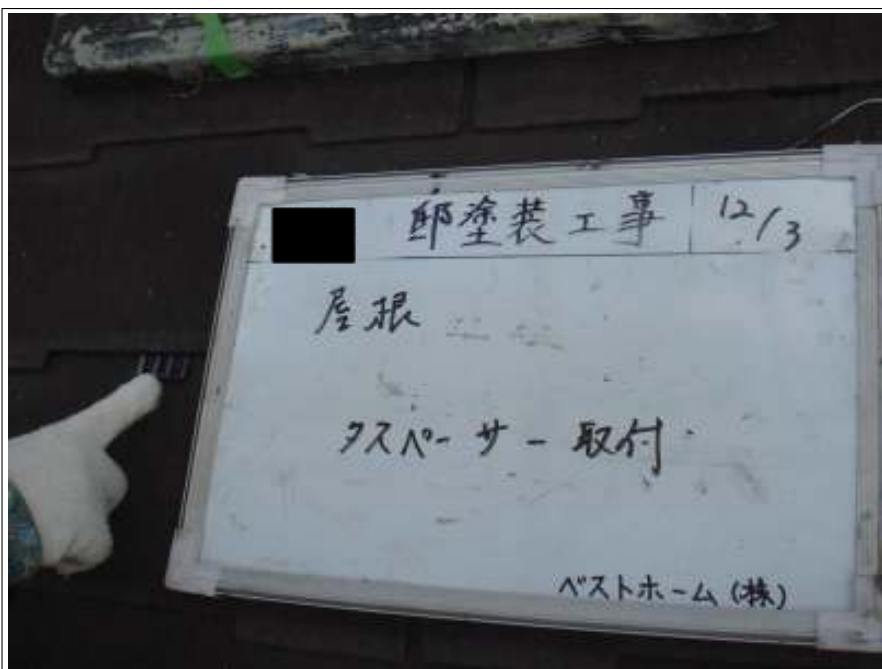 邸塗装工事 12/3
屋根
タスペーサー取付
ベストホーム(株)